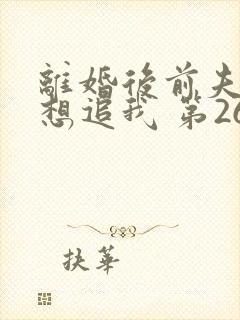 離婚後前夫
想追我 第26
扶華